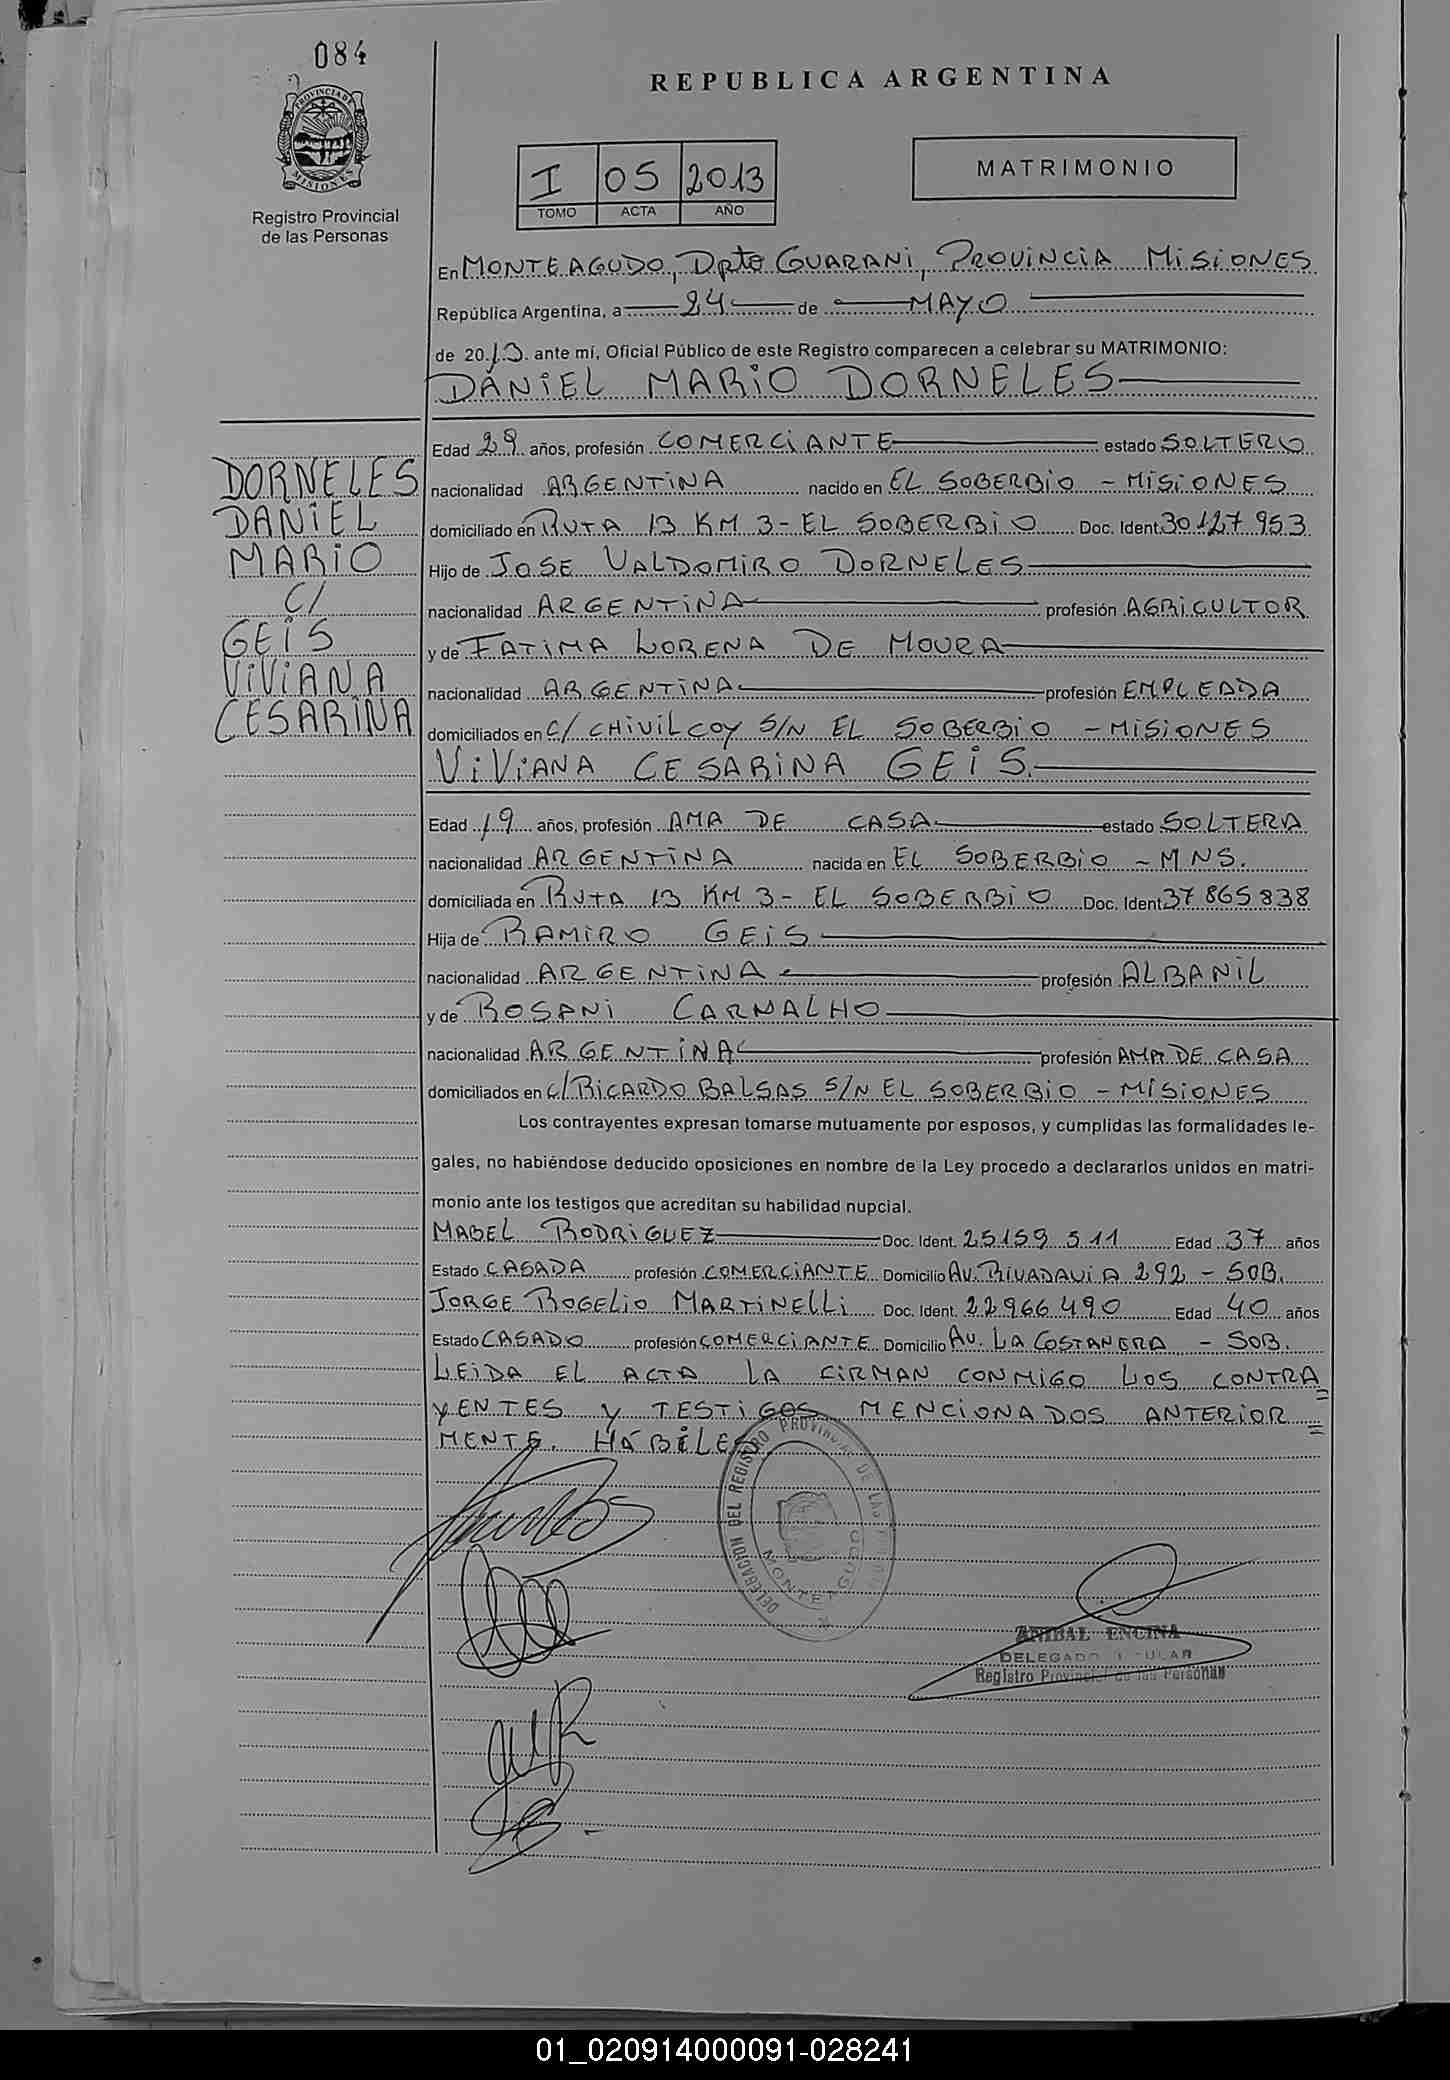 084
PROVINCIA DE MISIONES
Registro Provincial
de las Personas
REPUBLICA ARGENTINA
I 05 2013
TOMO ACTA AÑO
MATRIMONIO
En MONTEAGUDO, Dpto GUARANI, PROVINCIA MISIONES
República Argentina, a 24 de MAYO
de 2013 ante mí, Oficial Público de este Registro comparecen a celebrar su MATRIMONIO:
DANIEL MARIO DORNELES
Edad 29 años, profesión COMERCIANTE estado SOLTERO
nacionalidad ARGENTINA nacido en EL SOBERBIO - MISIONES
domiciliado en RUTA 13 KM 3 - EL SOBERBIO Doc. Ident. 30127953
Hijo de JOSE VALDOMIRO DORNELES
nacionalidad ARGENTINA profesión AGRICULTOR
y de FATIMA LORENA DE MOURA
nacionalidad ARGENTINA profesión EMPLEADA
domiciliados en C/ CHIVILCOY S/N EL SOBERBIO - MISIONES
DORNELES
DANIEL
MARIO
C/
GEIS
VIVIANA
CESARINA
VIVIANA CESARINA GEIS
Edad 19 años, profesión AMA DE CASA estado SOLTERA
nacionalidad ARGENTINA nacida en EL SOBERBIO - MNS.
domiciliada en RUTA 13 KM 3 - EL SOBERBIO Doc. Ident. 37865838
Hija de RAMIRO GEIS
nacionalidad ARGENTINA profesión ALBANIL
y de ROSANI CARNALHO
nacionalidad ARGENTINA profesión AMA DE CASA
domiciliados en C/ RICARDO BALSAS S/N EL SOBERBIO - MISIONES
Los contrayentes expresan tomarse mutuamente por esposos, y cumplidas las formalidades le-
gales, no habiéndose deducido oposiciones en nombre de la Ley procedo a declararlos unidos en matri-
monio ante los testigos que acreditan su habilidad nupcial.
MABEL RODRIGUEZ Doc. Ident. 25159511 Edad 37 años
Estado CASADA profesión COMERCIANTE Domicilio AV. RIVADAVIA 292 - SOB.
JORGE ROGELIO MARTINELLI Doc. Ident. 22966490 Edad 40 años
Estado CASADO profesión COMERCIANTE Domicilio AV. LA COSTANERA - SOB.
LEIDA EL ACTA LA FIRMAN CONMIGO LOS CONTRA=
YENTES Y TESTIGOS MENCIONADOS ANTERIOR=
MENTE. HÁBILES
DELEGACION DEL REGISTRO PROVINCIAL DE LAS
MONTEAGUDO
ANIBAL ENCINA
DELEGADO TITULAR
Registro Provincial de las Personas
01_020914000091-028241